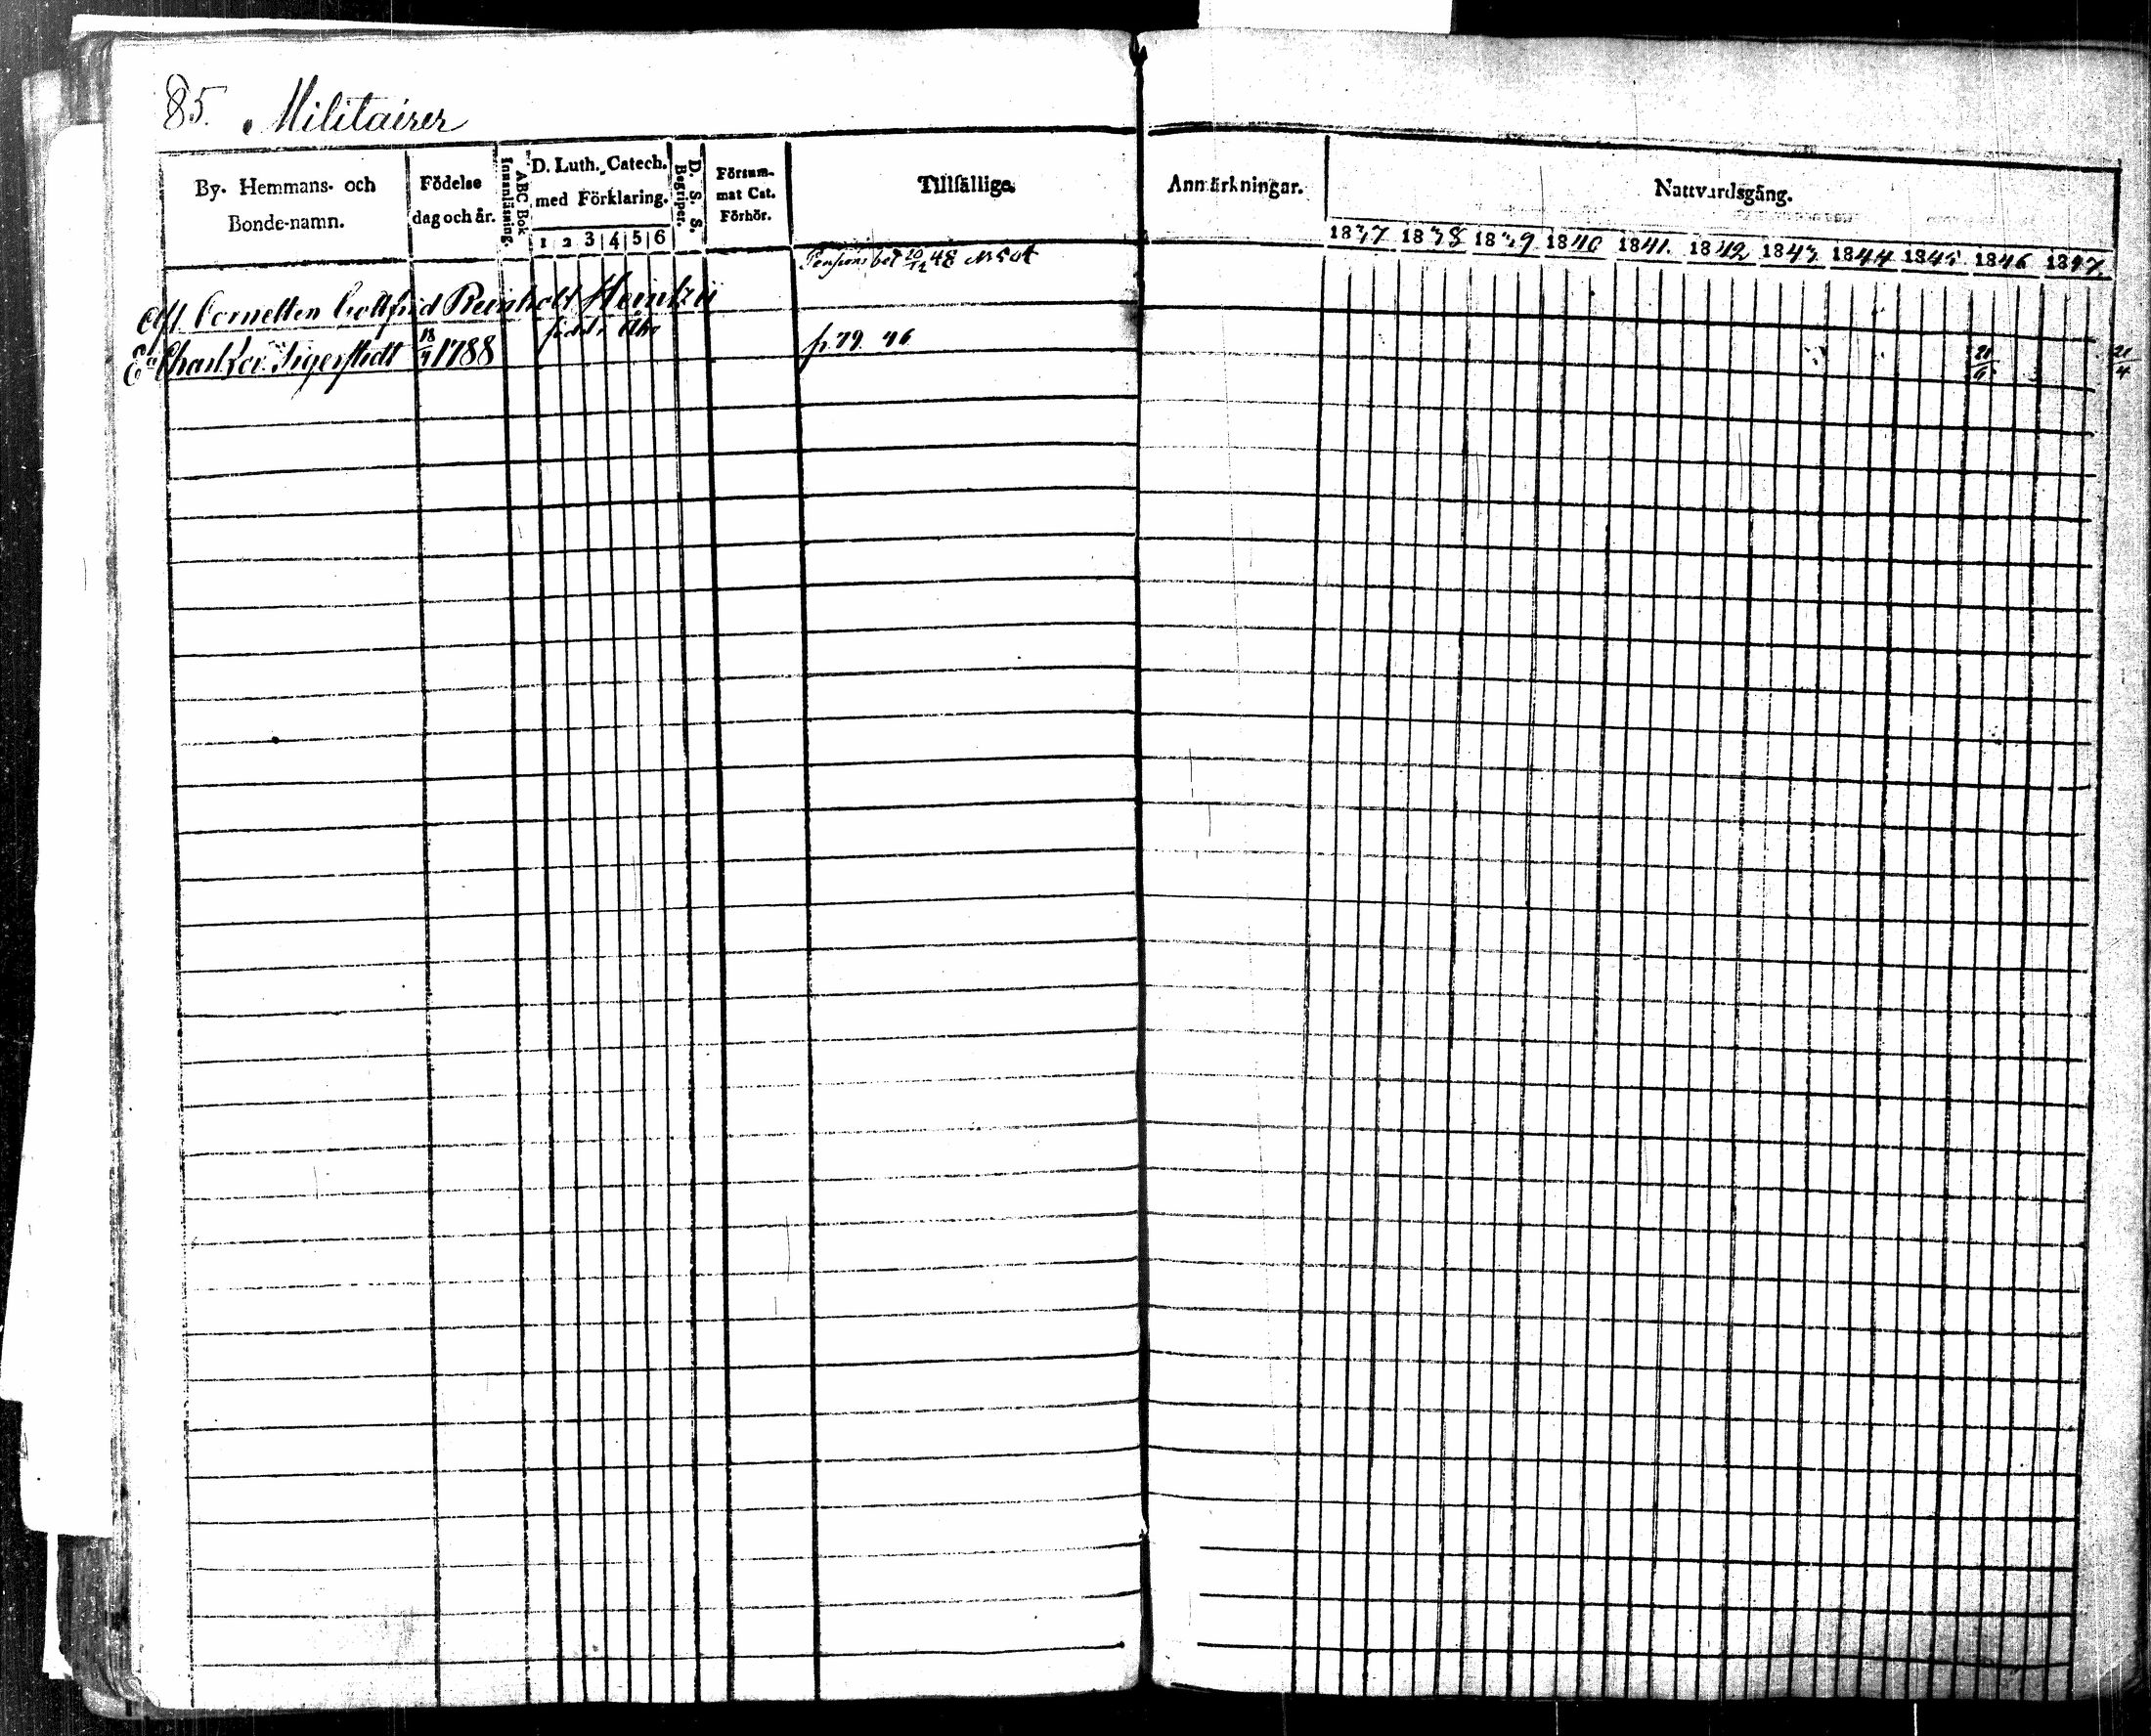 85. Militairer
By- Hemmans- och Bonde-namn.
Födelse dag och år.
ABC Bok Innanläsning.
D. Luth. Catech. med Förklaring.
1 2 3 4 5 6
D. S. S. Begriper.
Försummat Cat. Förhör.
Tillfällige.
Anmärkningar.
Nattvardsgång.
1837 1838 1839 1840 1841. 1842 1843 1844 1845 1846 1847
Pensions bet 20/12 48 No 504
Afl. Cornetten Gottfrid Reinholt Heintzii
Ea Charl. Lov. Tigerstedt 18/7 1788 född i Åbo fr. 79. 46 21/6 21/4